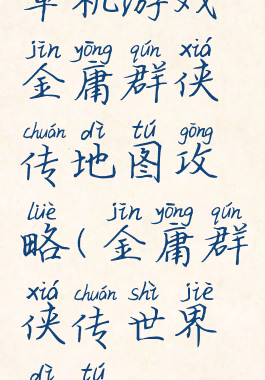 单机游戏
jīn yōng qún xiá
金庸群侠
chuán dì tú gōng
传地图攻
lüè jīn yōng qún
略(金庸群
xiá chuán shì jiè
侠传世界
dì tú